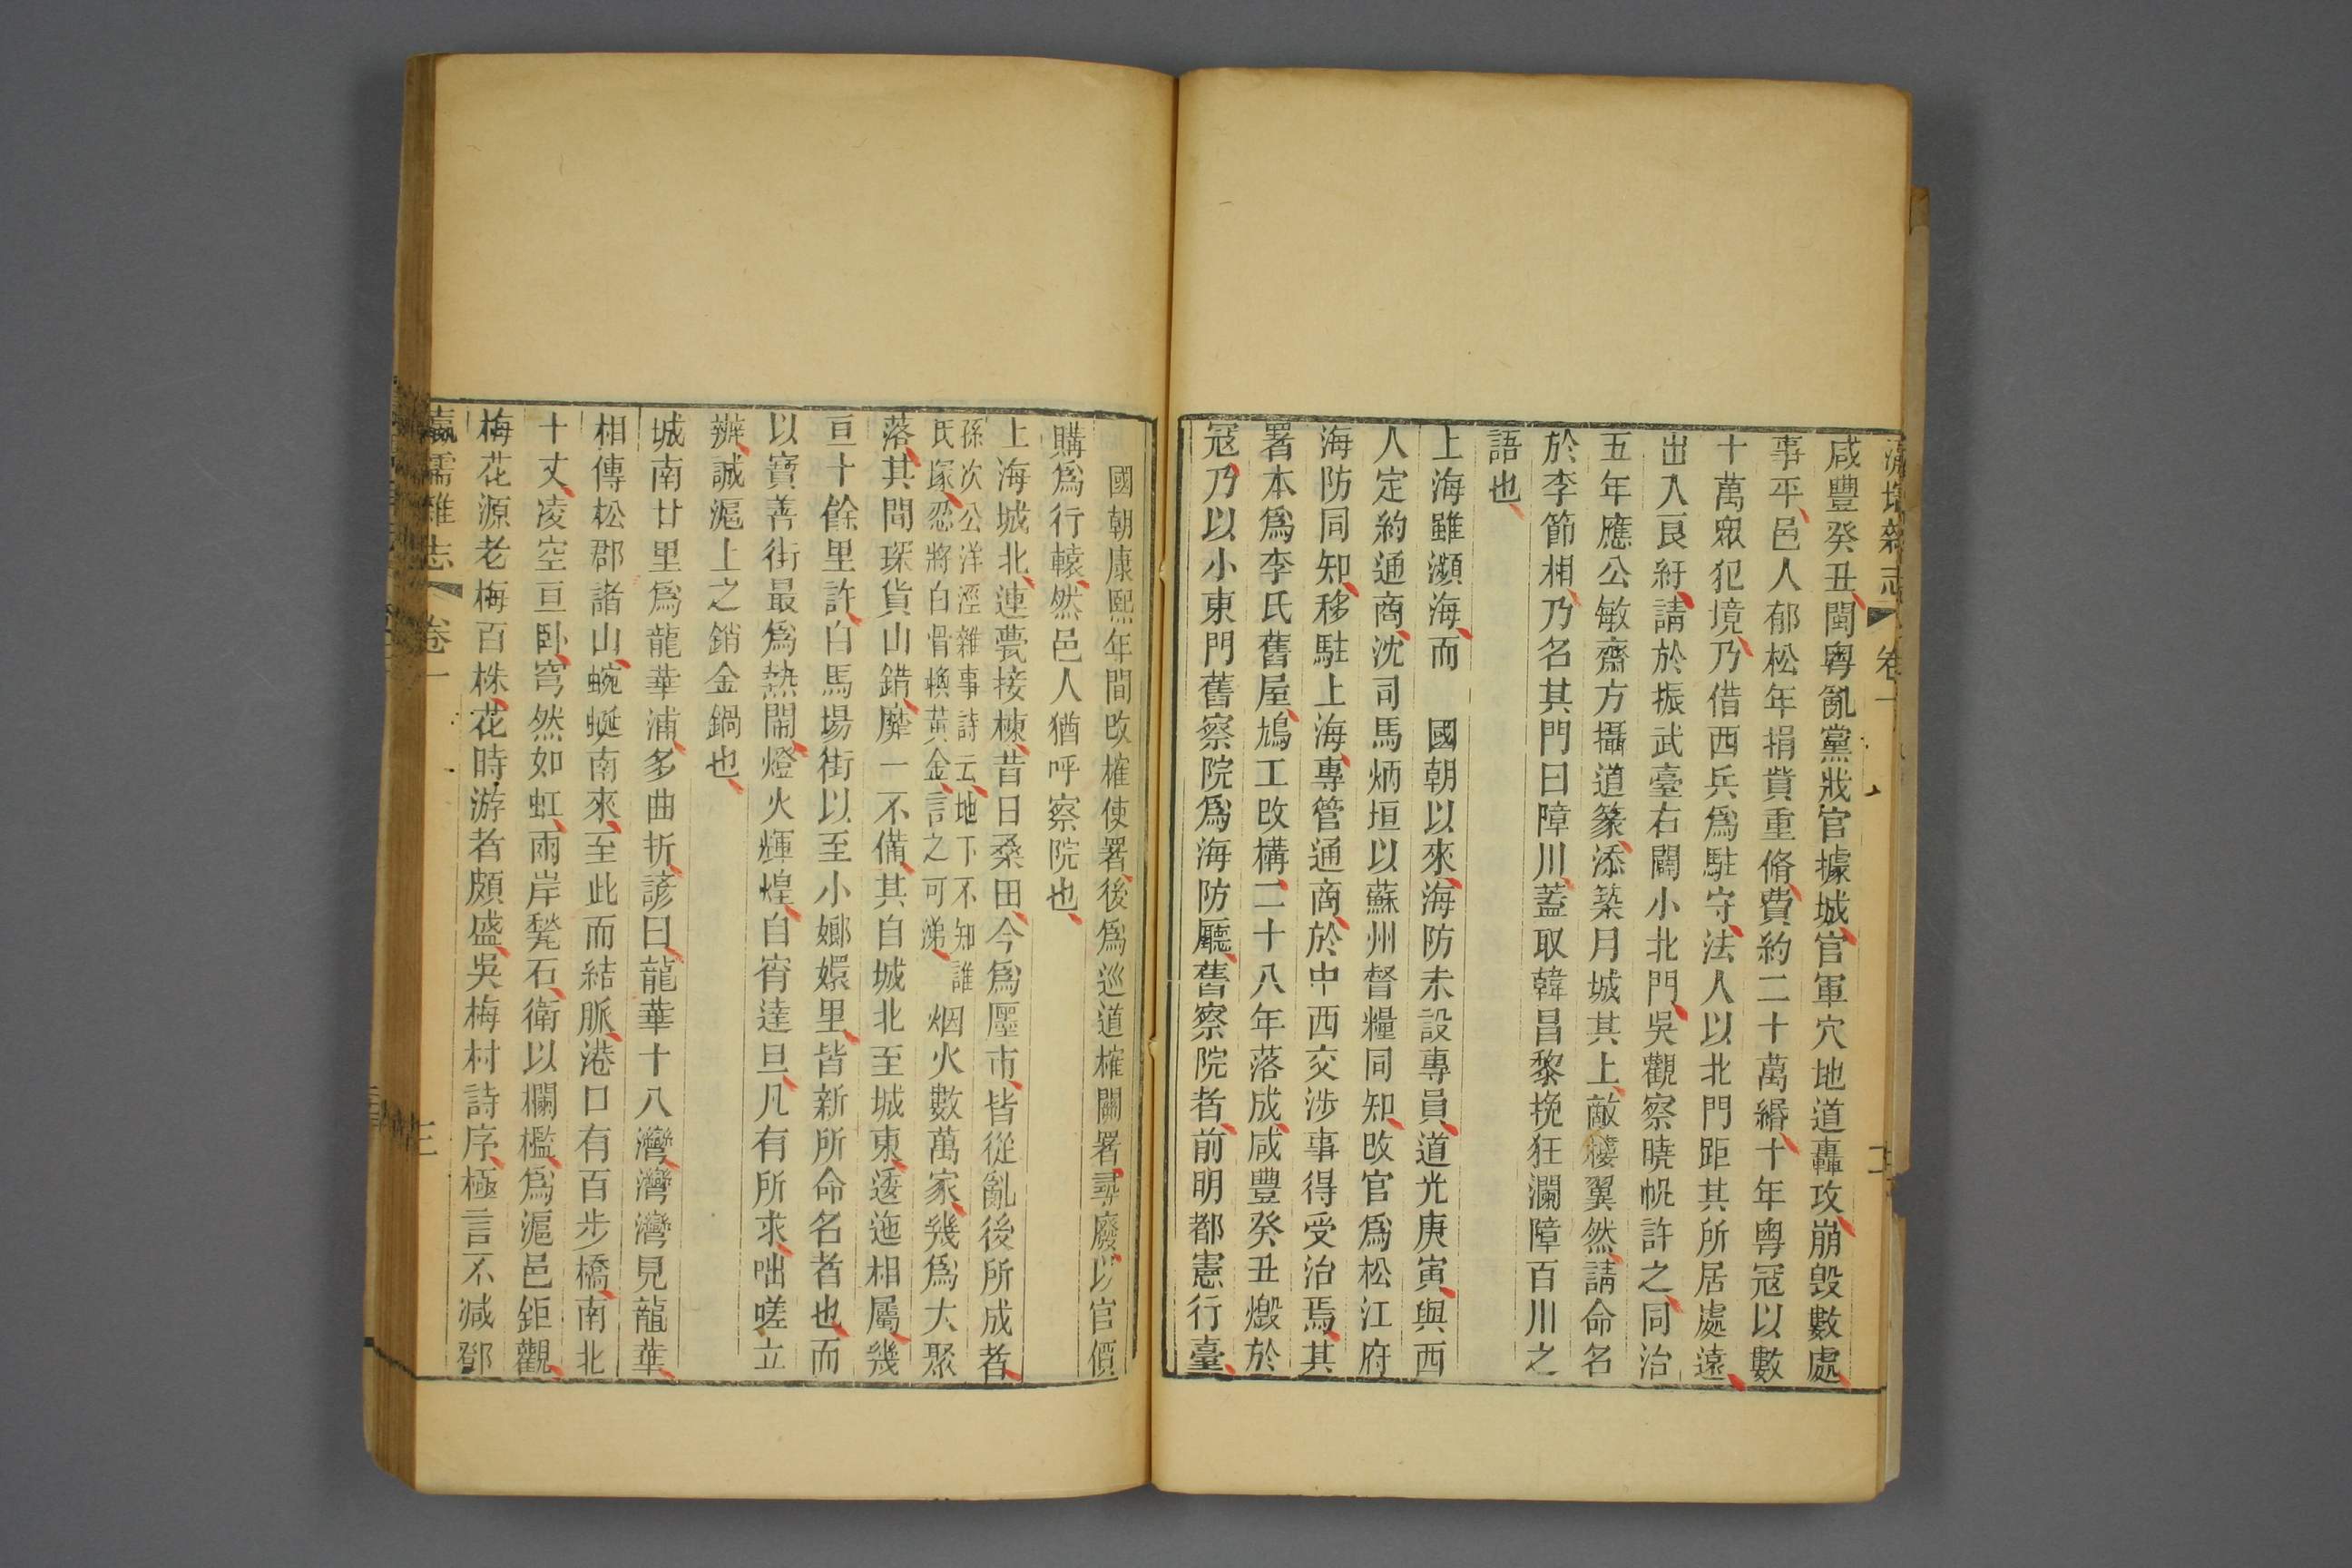 瀛壖雜志 卷一 二
咸豐癸丑閩粵亂黨戕官據城官軍穴地道轟攻崩毀數處
事平邑人郁松年捐貲重脩費約二十萬緡十年粵寇以數
十萬眾犯境乃借西兵爲駐守法人以北門距其所居處遠
出入艮紆請於振武臺右闢小北門吳觀察曉帆許之同治
五年應公敏齋方攝道篆添築月城其上敵樓翼然請命名
於李節相乃名其門曰障川蓋取韓昌黎挽狂瀾障百川之
語也
上海雖瀕海而 國朝以來海防未設專員道光庚寅與西
人定約通商沈司馬炳垣以蘇州督糧同知改官爲松江府
海防同知移駐上海專管通商於中西交涉事得受治焉其
署本爲李氏舊屋鳩工改構二十八年落成咸豐癸丑燬於
寇乃以小東門舊察院爲海防廳舊察院者前明都憲行臺
國朝康熙年間改榷使署後爲巡道榷關署尋廢以官價
購爲行轅然邑人猶呼察院也
上海城北連甍接棟昔日桑田今爲廛市皆從亂後所成者
孫次公洋涇雜事詩云地下不知誰
氏塚忍將白骨換黃金言之可涕
烟火數萬家幾爲大聚
落其間琛貨山錯靡一不備其自城北至城東逶迤相屬幾
亘十餘里許白馬場街以至小嫏嬛里皆新所命名者也而
以寶善街最爲熱鬧燈火輝煌自宵達旦凡有所求咄嗟立
辦誠滬上之銷金鍋也
城南廿里爲龍華浦多曲折諺曰龍華十八灣灣灣見龍華
相傳松郡諸山蜿蜒南來至此而結脈港口有百步橋南北
十丈凌空亘臥穹然如虹兩岸甃石衛以欄檻爲滬邑鉅觀
梅花源老梅百株花時游者頗盛吳梅村詩序極言不減鄧
瀛壖雜志 卷一 三